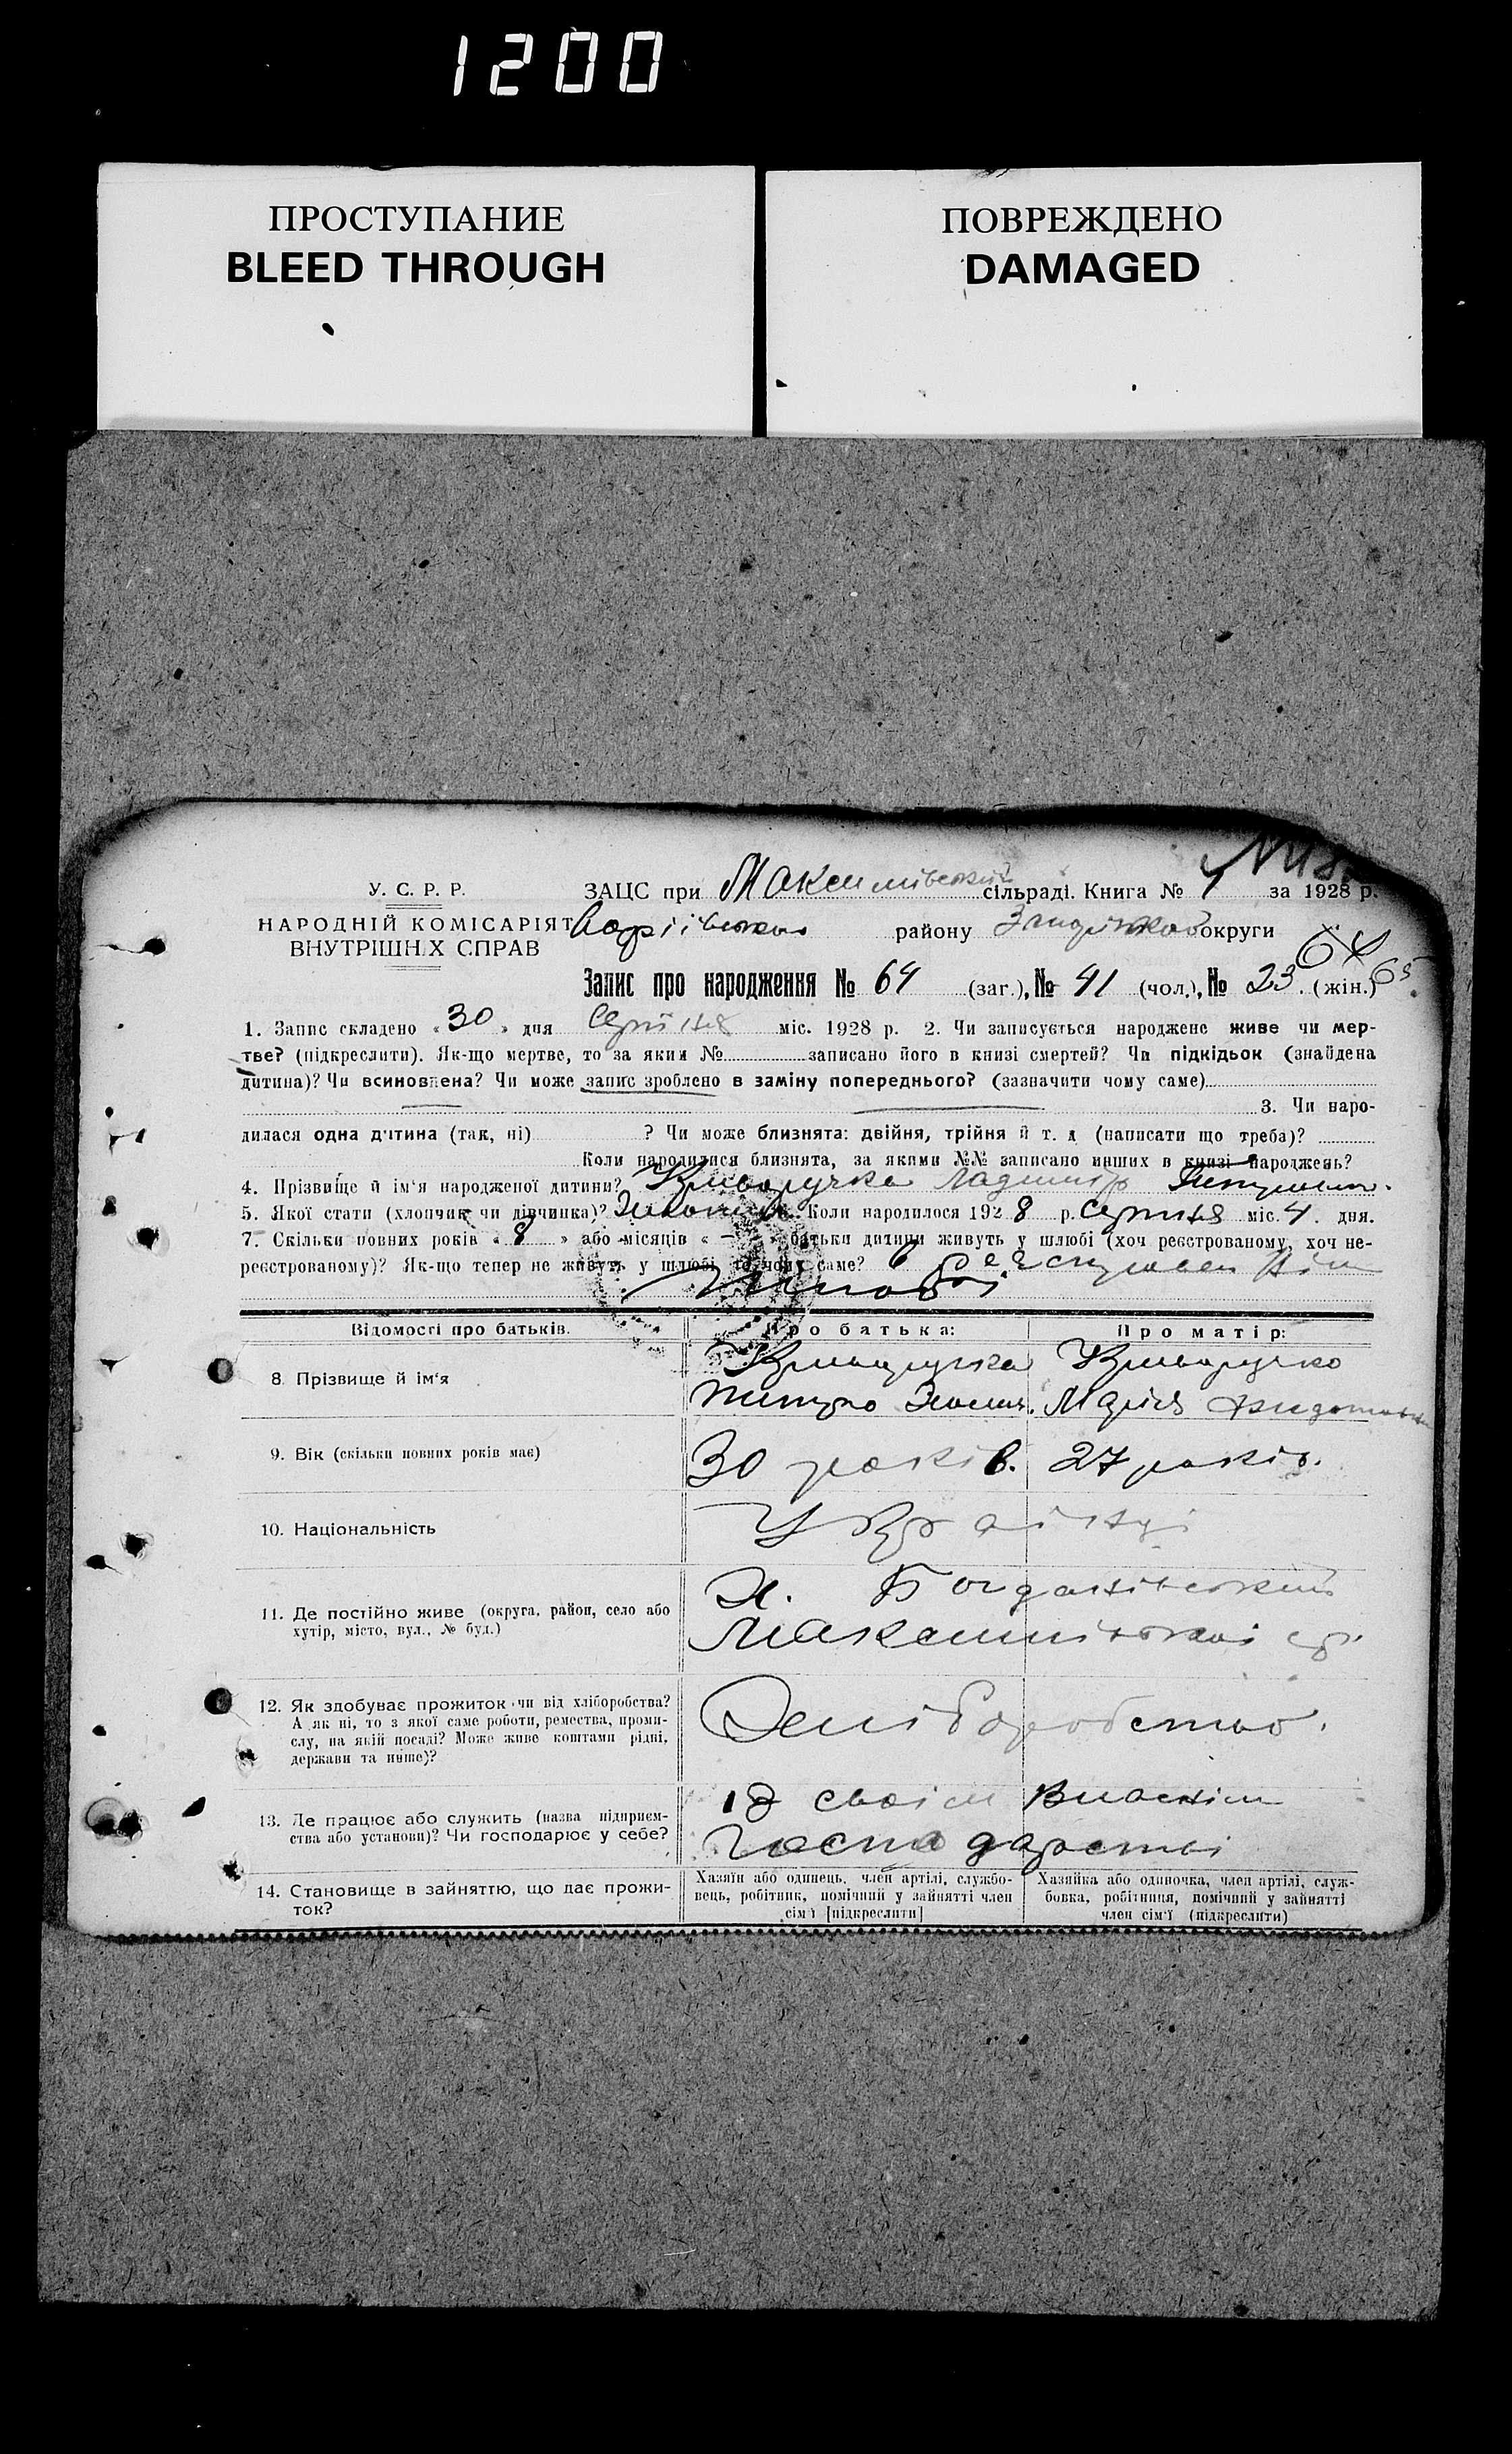 1200
ПРОСТУПАНИЕ
BLEED THROUGH
ПОВРЕЖДЕНО
DAMAGED
У. С. Р. Р.
НАРОДНІЙ КОМІСАРІЯТ
ВНУТРІШНІХ СПРАВ
ЗАЦС при Максимівській сільраді. Книга № 1 за 1928 р.
району округи
64
Запис про народження № 64 (заг.), № 41 (чол.), № 23 (жін.) 65
1. Запис складено «30» дня Серпня міс. 1928 р. 2. Чи записується народжене живе чи мер-
тве? (підкреслити). Як-що мертве, то за яким № записано його в книзі смертей? Чи підкідьок (знайдена
дитина)? Чи всиновлена? Чи може запис зроблено в заміну попереднього? (зазначити чому саме)
3. Чи наро-
дилася одна дитина (так, ні) ? Чи може близнята: двійня, трійня й т. д (написати що треба)?
Коли народилися близнята, за якими №№ записано инших в книзі народжень?
4. Прізвище й ім'я народженої дитини? Криворучка
5. Якої стати (хлопчик чи дівчинка)? Коли народилося 1928 р. Серпня міс. 4. дня.
7. Скільки повних років «8» або місяців « – » батьки дитини живуть у шлюбі (хоч реєстрованому, хоч не-
реєстрованому)? Як-що тепер не живуть у шлюбі, то чому саме? в
шлюбі
Відомості про батьків. Про батька: Про матір:
8. Прізвище й ім'я Криворучка Криворучко
Марія
9. Вік (скільки повних років має) 30 років. 27 років.
10. Національність Українці
11. Де постійно живе (округа, район, село або
хутір, місто, вул., № буд.)
Х. Богданівський
Максимівської с/р
12. Як здобуває прожиток чи від хліборобства?
А як ні, то з якої саме роботи, ремества, проми-
слу, на якій посаді? Може живе коштами рідні,
держави та инше)?
Хліборобство.
13. Де працює або служить (назва підприєм-
ства або установи)? Чи господарює у себе?
своїм власнім
Господарстві
14. Становище в зайняттю, що дає прожи-
ток?
Хазяїн або одинець, член артілі, службо-
вець, робітник, помічний у зайнятті член
сім'ї [підкреслити]
Хазяйка або одиночка, член артілі, служ-
бовка, робітниця, помічний у зайнятті
член сім'ї (підкреслити)